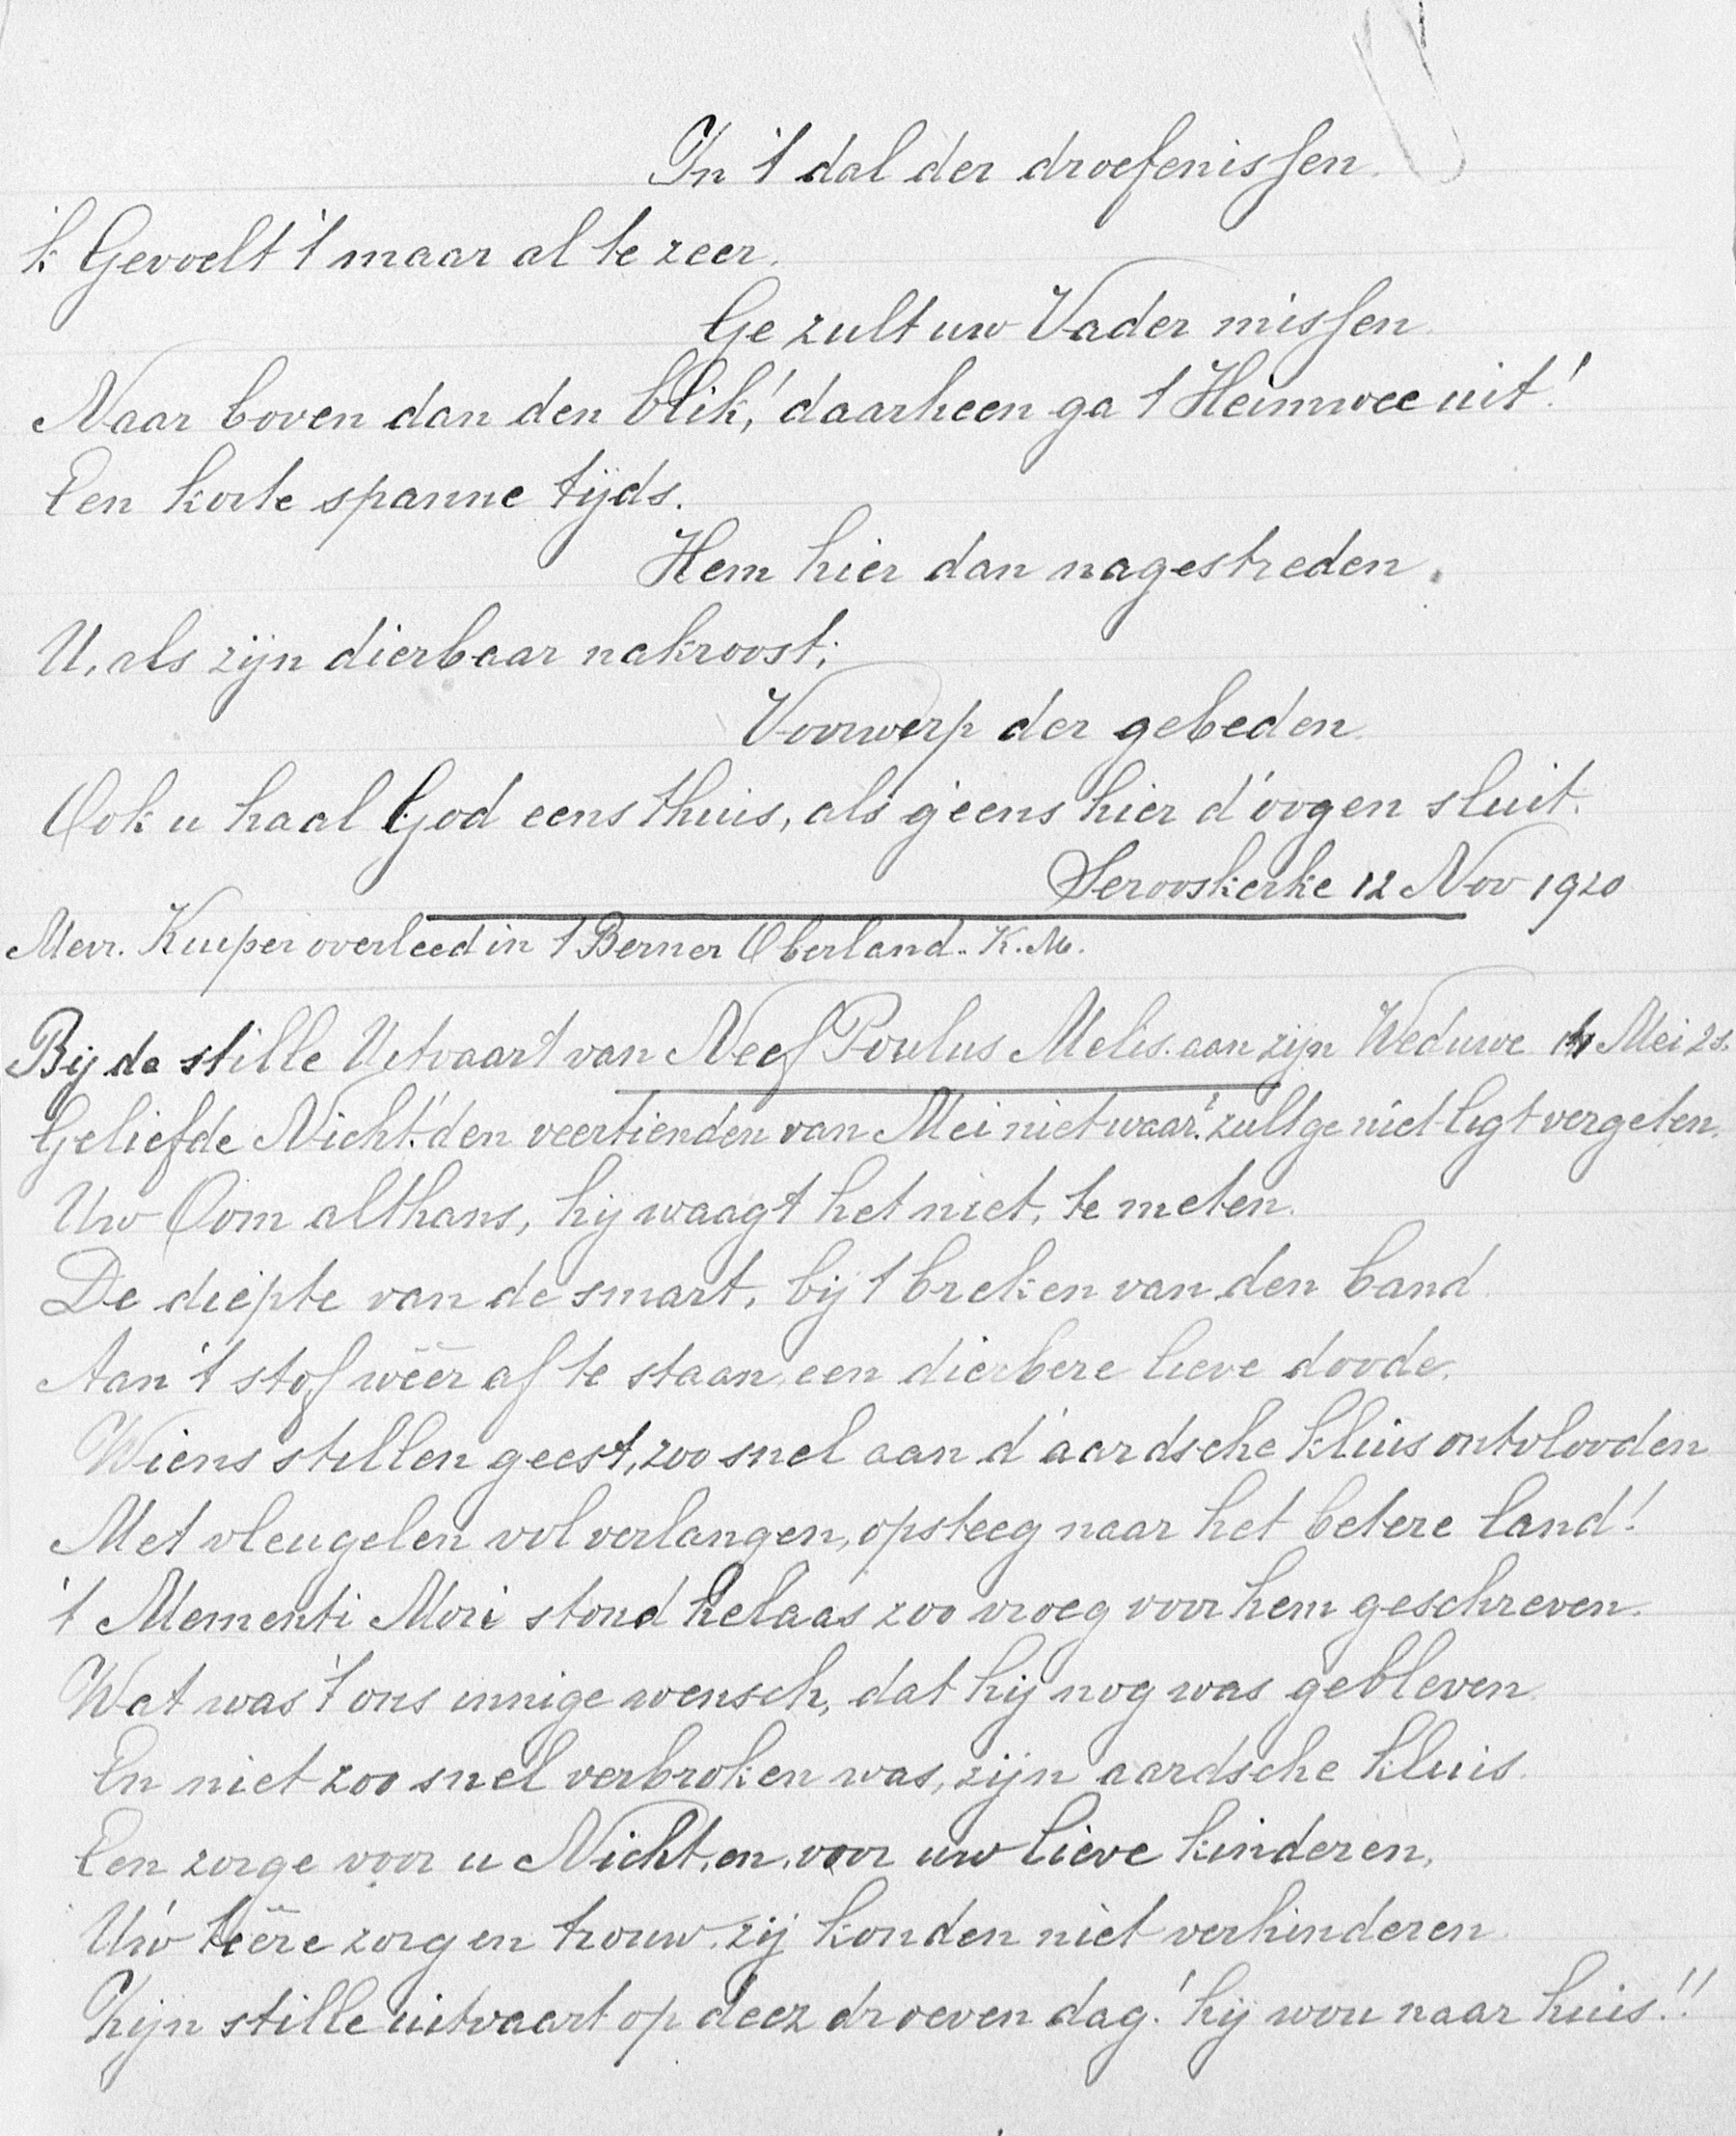 In 't dal der droefenissen.
'k Gevoelt 't maar al te zeer.
Ge zult uw Vader missen
Naar boven dan den blik,! daarheen ga 't Heimwee uit!
Een korte spanne tijds.
Hem hier dan nagestreden.
U, als zijn dierbaar nakroost;
Voorwerp der gebeden.
Ook u haal God eens thuis, als g'eens hier d'oogen sluit.
Serooskerke 12 Nov 1920
Mevr. Kuiper overleed in 't Berner Oberland. K. M.
Bij de stille Uitvaart van Neef Poulus Melis. aan zijn Weduwe 14 Mei 23.
Geliefde Nicht! den veertienden van Mei niet waar? zult ge niet ligt vergeten.
Uw Oom althans, hij waagt het niet, te meten.
De diepte van de smart, bij 't breken van den band.
Aan 't stof wéér af te staan, een dierbere lieve doode.
Wiens stillen geest, zoo snel aan d'aardsche kluis ontvlooden
Met vleugelen vol verlangen, opsteeg naar het betere land!
't Mementi Mori stond helaas zoo vroeg voor hem geschreven.
Wat was 't ons innige wensch, dat hij nog was gebleven.
En niet zoo snel verbroken was, zijn aardsche kluis.
Een zorge voor u Nicht, en, voor uw lieve kinderen,
Uw teêre zorg en trouw. zij konden niet verhinderen.
Zijn stille uitvaart op deez droeven dag! hij wou naar huis!!